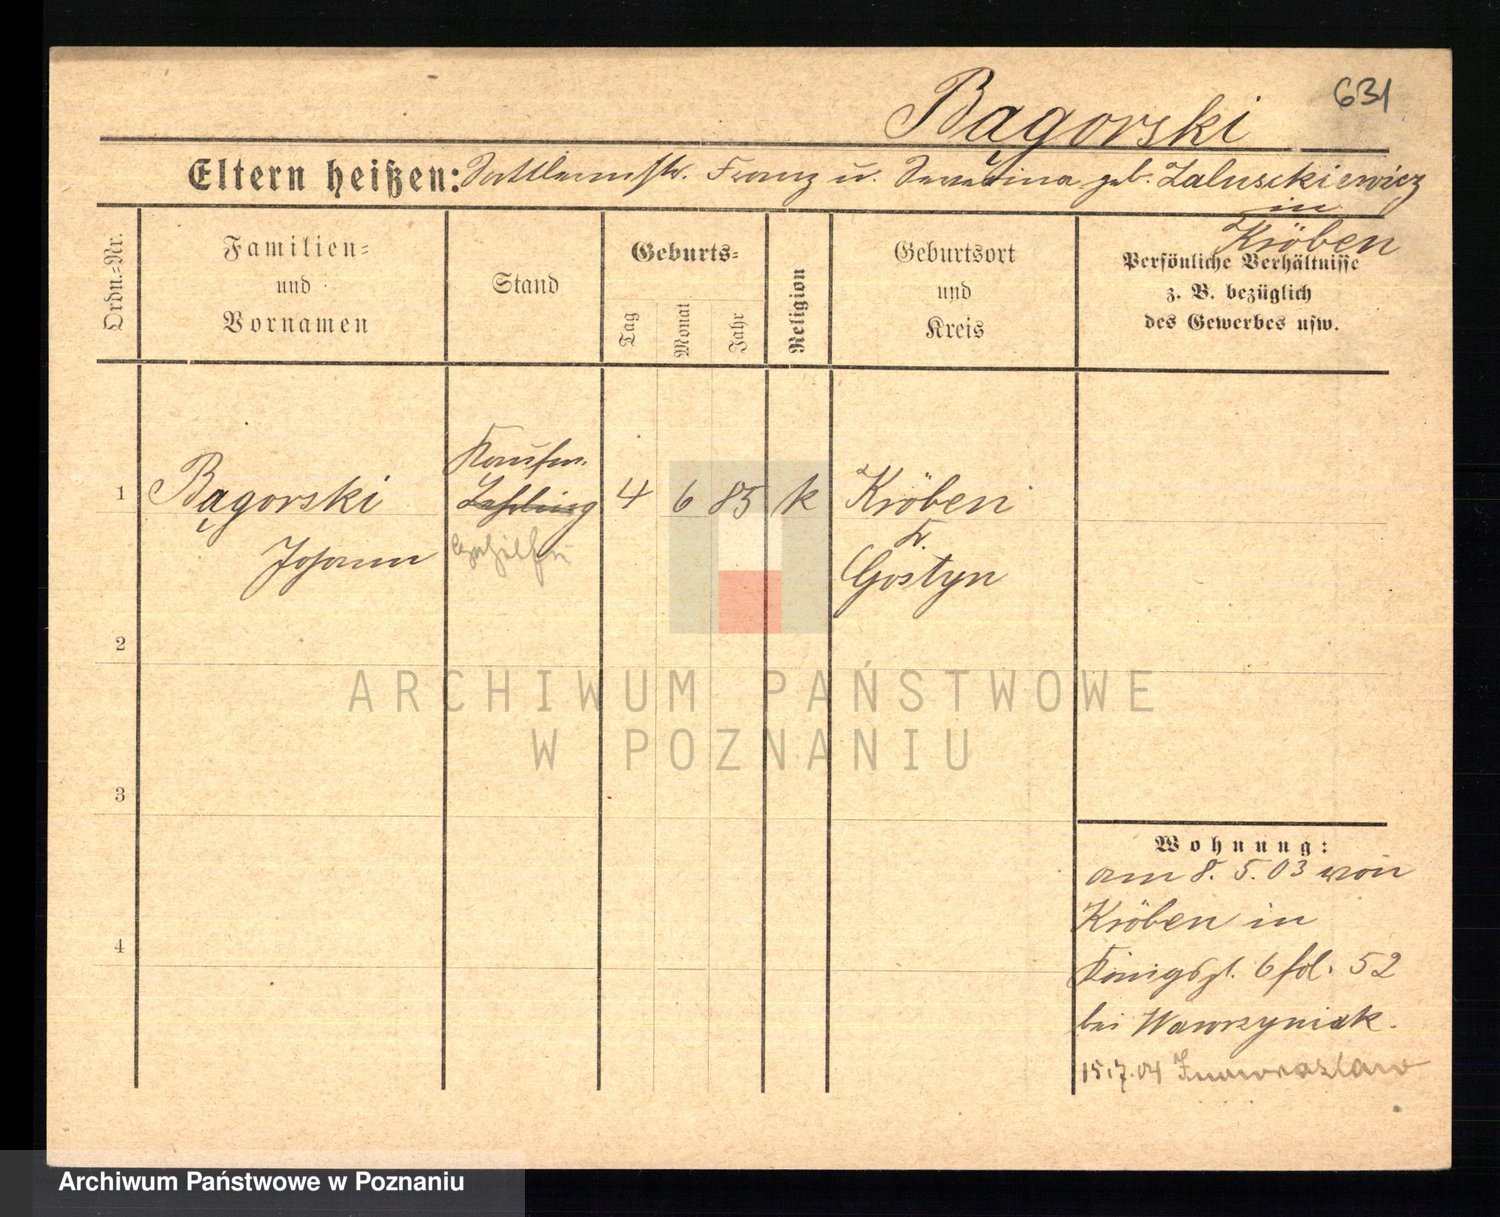 631
Bągorski
Eltern heißen: Sattlermstr. Franz u. Severina geb. Zaluschkiewicz
in
Kröben
Ordn.=Nr.
Familien=
und
Vornamen
Stand
Geburts=
Tag
Monat
Jahr
Religion
Geburtsort
und
Kreis
Persönliche Verhältnisse
z. B. bezüglich
des Gewerbes usw.
Kaufm.
1 Bągorski Lehrling 4 6 85 k Kröben
Johann Gehilfe
Kr.
Gostyn
2
3
4
Wohnung:
am 8. 5. 03 von
Kröben in
Königspl. 6 fol. 52
bei Wawrzyniak.
15.7.04 Inowrazlaw
ARCHIWUM PAŃSTWOWE
W POZNANIU
Archiwum Państwowe w Poznaniu